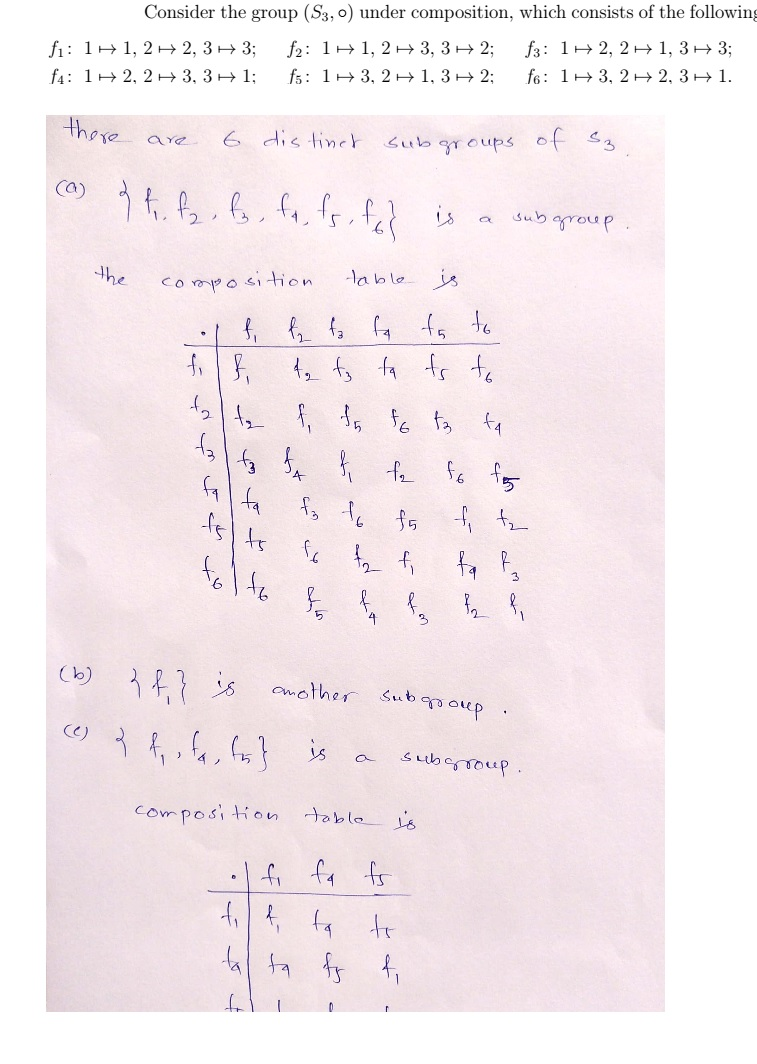 Consider the group (S₃, ∘) under composition, which consists of the following
f₁: 1 ↦ 1, 2 ↦ 2, 3 ↦ 3; f₂: 1 ↦ 1, 2 ↦ 3, 3 ↦ 2; f₃: 1 ↦ 2, 2 ↦ 1, 3 ↦ 3;
f₄: 1 ↦ 2, 2 ↦ 3, 3 ↦ 1; f₅: 1 ↦ 3, 2 ↦ 1, 3 ↦ 2; f₆: 1 ↦ 3, 2 ↦ 2, 3 ↦ 1.
there are 6 distinct subgroups of S₃.
(a) {f₁, f₂, f₃, f₄, f₅, f₆} is a subgroup.
the composition table is
· f₁ f₂ f₃ f₄ f₅ f₆
f₁ f₁ f₂ f₃ f₄ f₅ f₆
f₂ f₂ f₁ f₅ f₆ f₃ f₄
f₃ f₃ f₄ f₁ f₂ f₆ f₅
f₄ f₄ f₃ f₆ f₅ f₁ f₂
f₅ f₅ f₆ f₂ f₁ f₄ f₃
f₆ f₆ f₅ f₄ f₃ f₂ f₁
(b) {f₁} is another subgroup.
(c) {f₁, f₄, f₅} is a subgroup.
composition table is
· f₁ f₄ f₅
f₁ f₁ f₄ f₅
f₄ f₄ f₅ f₁